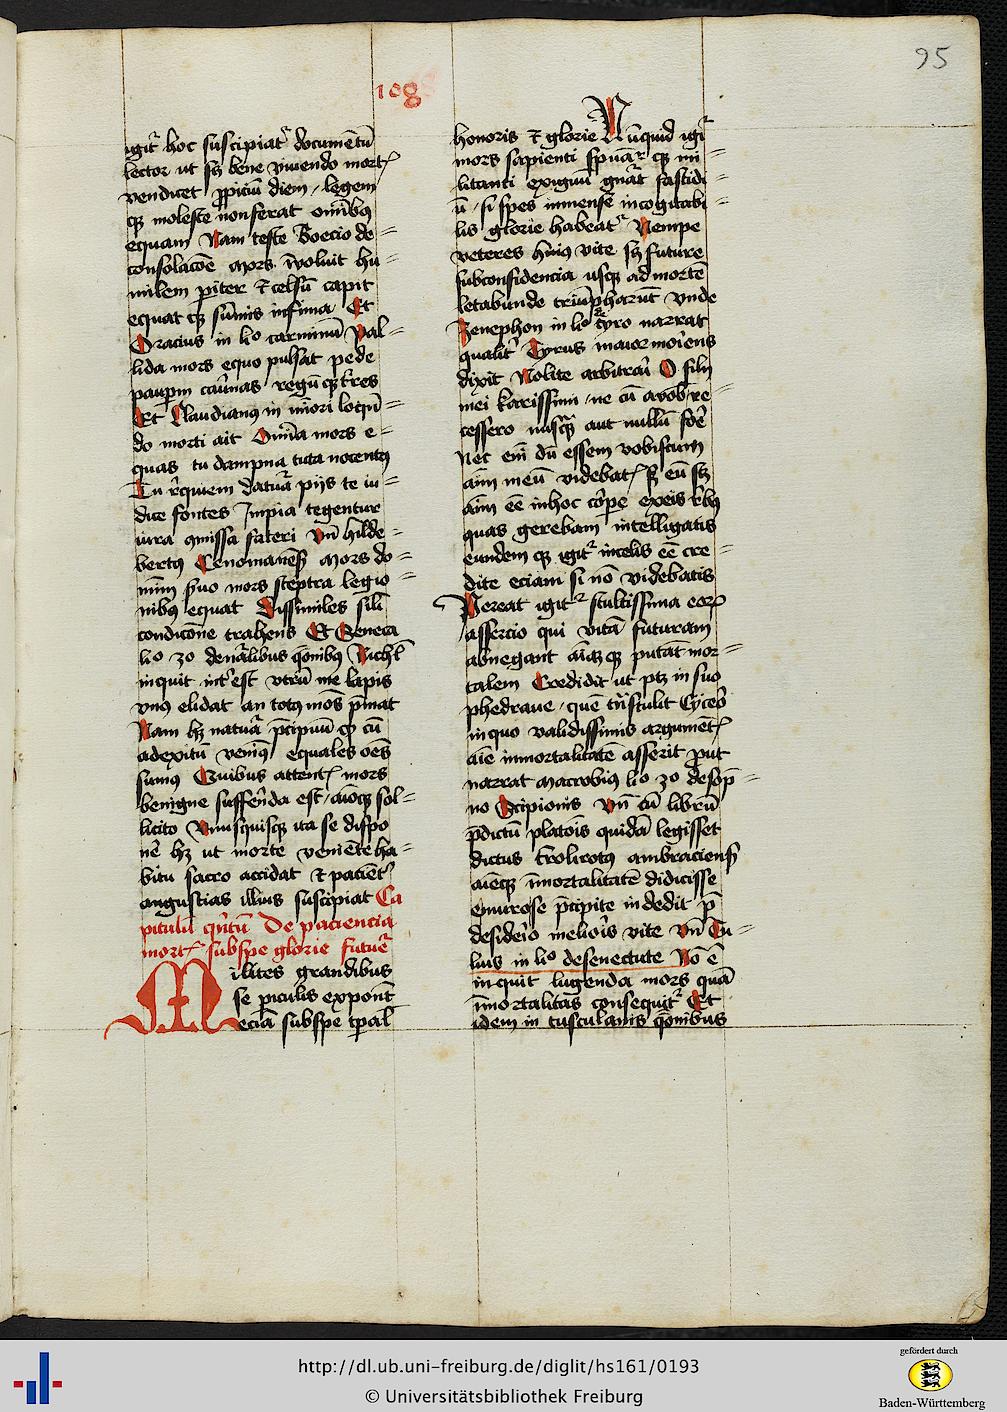 95
108
igit᷑ hoc suscipiat᷑ documētū
lector ut sꝫ bene viuendo mort
vendicet ꝓpiciū diem / legem
qꝫ moleste non ferat omibꝰ
equam Nam teste Boecio de
consolacōe Mors īvoluit hu
milem piter ⁊ celsū capit
equat qꝫ sūmis infima Et
Oracius in lio carminū Pal
lida mors equo pulsat pede
paupm cabnas regū qꝫ tres
Et Claudianꝰ in mīori loqn̄
do morti ait Omīa mors e
quas tu dampna tuta nocentꝰ
Tu rͤquiem datura pijs te iu
dice sontes Impia tegentur
iura qmissa fateri Vn̄ hilde
bertꝰ Cenomanēs Mors do
mīm suo mors sceptra legio
nibꝰ equat Dissimiles sili
condicōne trahens Et Seneca
lio 2o de natālibus qōnibꝰ Nichͭl
inquit int᷑est vtrū me lapis
vnꝰ elidat an totꝰ mōs pͤmat
Nam hꝫ natura pͤcipuū qꝫ cū
ad exitū venimꝰ equales oēs
sumꝰ Quibus attentͭ mors
benigne sufferēda est / aīoqꝫ sol
licito Vnusquisqꝫ ita se dispo
nē hꝫ ut morte veniēte ha
bitu sacro accidat ⁊ patient᷑
angustias illius suscipiat Ca
pitulū qn̄tū De paciencia
mortͭ subspe glorie future
Milites grandibus
se piculis exponūt
eciā subspe tpal
honoris ⁊ glorie Nūquid igit᷑
mors sapienti spuār qꝫ mi
litanti exiguū gnāt fastidi
ū / si spes inmense incogitabi
lis glorie habeat᷑ Nempe
veteres huiꝰ vite sꝫ future
subconfidencia usqꝫ ad mortē
letabunde triūpharūt Vnde
Zenephon in lio Cyro narrat
qualit᷑ Cyrus maior moriens
dixit Nolite arbitrari O filij
mei karissimi / ne cū avob re
cessero nusqȝ aut nullū fore
Nec em̄ dū essem vobiscum
aīm meū videbatͭ sꝫ eū sꝫ
aīm eē in hoc corpe ex eis rebꝰ
quas gerebam intelligatis
eundem qꝫ igit᷑ incelis eē cre
dite eciam si nō videbatis
Pereat igit᷑ stultissima eorꝫ
assercio qui vitā futuram
abnegant aīaqꝫ putāt mor
talem Credidit ut ptꝫ in suo
phedrone / quē tn̄stulit Cycero
in quo validissimis argumētͭ
aīe inmortalitatē asserit put
narrat Macrobius lio 2o de sōp
no Scipionis Vn̄ cū librū
pͤdictū platōis quidā legisset
dictus trolicotꝰ ambraciensꝫ
aīeqꝫ īmortalitatē didicisse
emurose pͤcipite in dedit p
desiderio melioris vite Vn̄ Tu
lius in lio de senectute No ē
inquit lugenda mors quā
īmortalitas consequit᷑ Et
idem in tusculanis qōnibus
http://dl.ub.uni-freiburg.de/diglit/hs161/0193
© Universitätsbibliothek Freiburg
gefördert durch
Baden-Württemberg